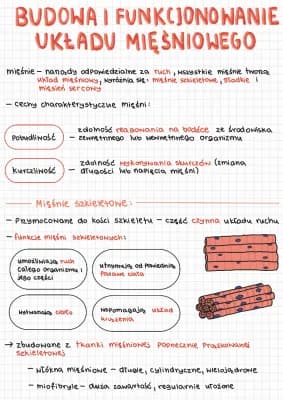 BUDOWA I FUNKCJONOWANIE
UKŁADU MIĘŚNIOWEGO
mięśnie – narządy odpowiedzialne za ruch, wszystkie mięśnie tworzą
układ mięśniowy, wyróżnia się: mięśnie szkieletowe, gładkie i
mięsień sercowy
– cechy charakterystyczne mięśni:
Pobudliwość – zdolność reagowania na bodźce ze środowiska
zewnętrznego lub wewnętrznego organizmu
Kurczliwość – zdolność wykonywania skurczów (zmiana
długości lub napięcia mięśni)
Mięśnie szkieletowe:
– przymocowane do kości szkieletu – część czynna układu ruchu
– funkcje mięśni szkieletowych:
umożliwiają ruch
całego organizmu i
jego części
utrzymują odpowiednią
postawę ciała
wytwarzają ciepło
wspomagają układ
krążenia
→ zbudowane z tkanki mięśniowej poprzecznie prążkowanej
szkieletowej
– włókna mięśniowe – długie, cylindryczne, wielojądrowe
– miofibryle – duża zawartość, regularnie ułożone